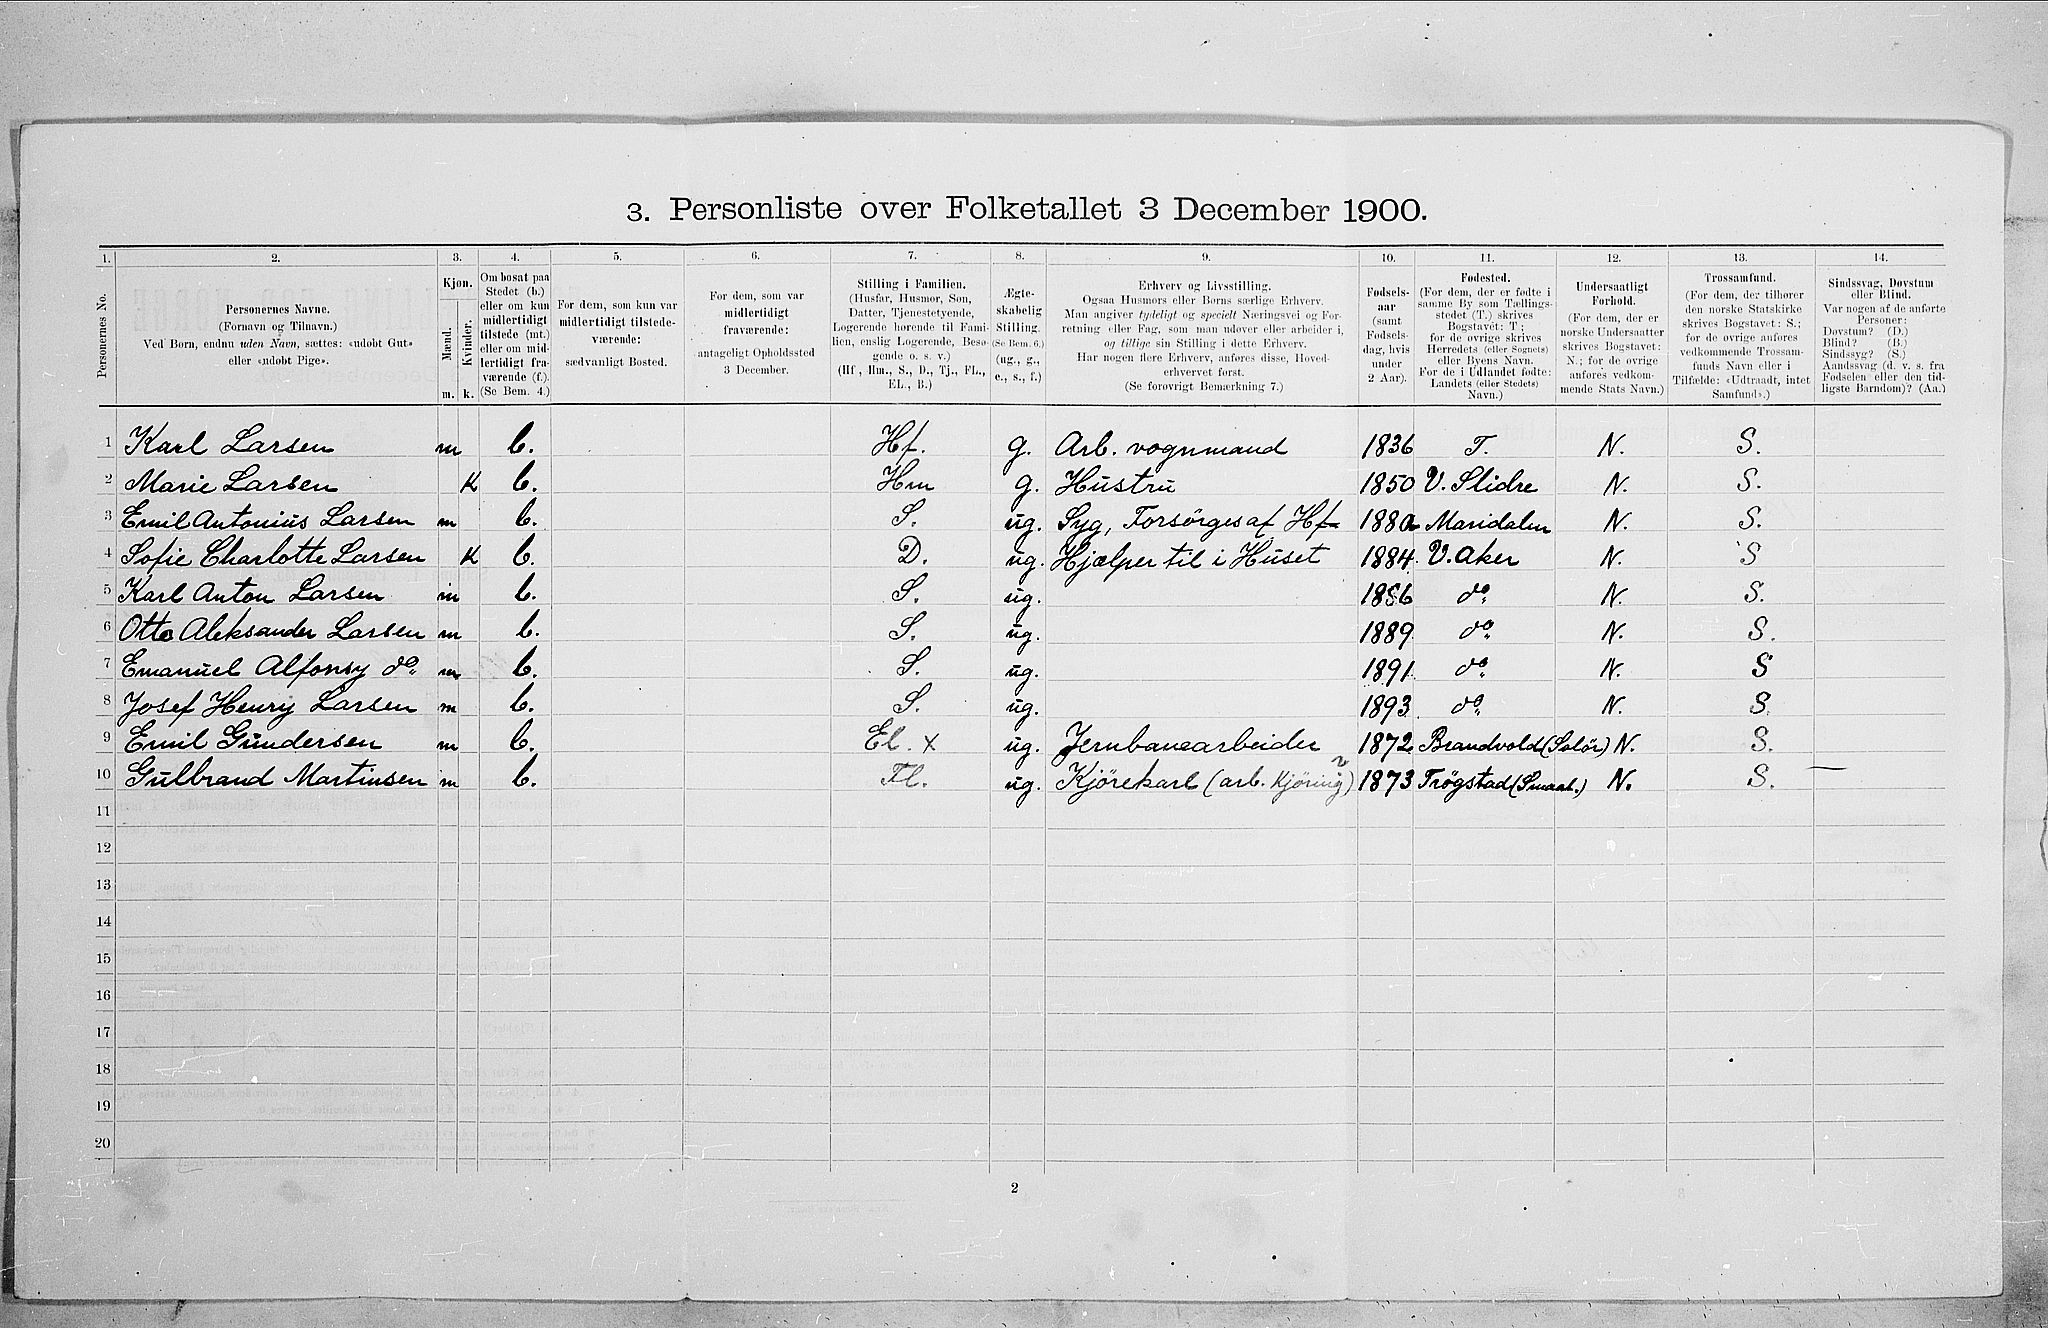 3. Personliste over Folketallet 3 December 1900.
1. 2. 3. 4. 5. 6. 7. 8. 9. 10. 11. 12. 13. 14.
Personernes No.
Personernes Navne.
(Fornavn og Tilnavn.)
Ved Børn, endnu uden Navn, sættes: «udøbt Gut»
eller «udøbt Pige».
Kjøn.
Mænd.
Kvinder.
m. k.
Om bosat paa
Stedet (b.)
eller om kun
midlertidigt
tilstede (mt.)
eller om mid-
lertidigt fra-
værende (f.)
(Se Bem. 4.)
For dem, som kun var
midlertidigt tilstede-
værende:
sædvanligt Bosted.
For dem, som var
midlertidigt
fraværende:
antageligt Opholdssted
3 December.
Stilling i Familien.
(Husfar, Husmor, Søn,
Datter, Tjenestetyende,
Logerende hørende til Fami-
lien, enslig Logerende, Besø-
gende o. s. v.)
(Hf., Hm., S., D., Tj., FL.,
EL., B.)
Ægte-
skabelig
Stilling.
(Se Bem. 6.)
(ug., g.,
e., s., f.)
Erhverv og Livsstilling.
Ogsaa Husmors eller Børns særlige Erhverv.
Man angiver tydeligt og specielt Næringsvei og For-
retning eller Fag, som man udøver eller arbeider i,
og tillige sin Stilling i dette Erhverv.
Har nogen flere Erhverv, anføres disse, Hoved-
erhvervet først.
(Se forøvrigt Bemærkning 7.)
Fødsels-
aar
(samt
Fødsels-
dag, hvis
under
2 Aar).
Fødested.
(For dem, der er fødte i
samme By som Tællings-
stedet (T.) skrives
Bogstavet: T;
for de øvrige skrives
Herredets (eller Sognets)
eller Byens Navn.
For de i Udlandet fødte:
Landets (eller Stedets)
Navn.)
Undersaatligt
Forhold.
(For dem, der er
norske Undersaatter
skrives Bogstavet:
N.; for de øvrige
anføres vedkom-
mende Stats Navn.)
Trossamfund.
(For dem, der tilhører
den norske Statskirke
skrives Bogstavet: S.;
for de øvrige anføres
vedkommende Trossam-
funds Navn eller i
Tilfælde: «Udtraadt, intet
Samfund».)
Sindssvag, Døvstum
eller Blind.
Var nogen af de anførte
Personer:
Døvstum? (D.)
Blind? (B.)
Sindssyg? (S.)
Aandssvag (d. v. s. fra
Fødselen eller den tid-
ligste Barndom)? (Aa.)
1 Karl Larsen m b. Hf. g. Arb. vognmand 1836 T. N. S.
2 Marie Larsen K b. Hm g. Hustru 1850 V. Slidre N. S.
3 Emil Antonius Larsen m b. S. ug. Syg, Forsørges af Hf 1880 Maridalen N. S.
4 Sofie Charlotte Larsen K b. D. ug. Hjælper til i Huset 1884 V. Aker N. S
5 Karl Anton Larsen m b. S. ug. 1886 do N. S.
6 Otto Aleksander Larsen m b. S. ug. 1889 do N. S.
7 Emanuel Alfonsy do m b. S. ug. 1891 do N. S
8 Josef Henry Larsen m b. S. ug. 1893 do N. S.
9 Emil Gundersen m b. El. x ug. Jernbanearbeider 1872 Brandvold (Solør) N. S.
10 Gulbrand Martinsen m b. Fl. ug. Kjørekarl (arb. Kjøring) 1873 Trøgstad (Smaal.) N. S. —
11
12
13
14
15
16
17
18
19
20
2